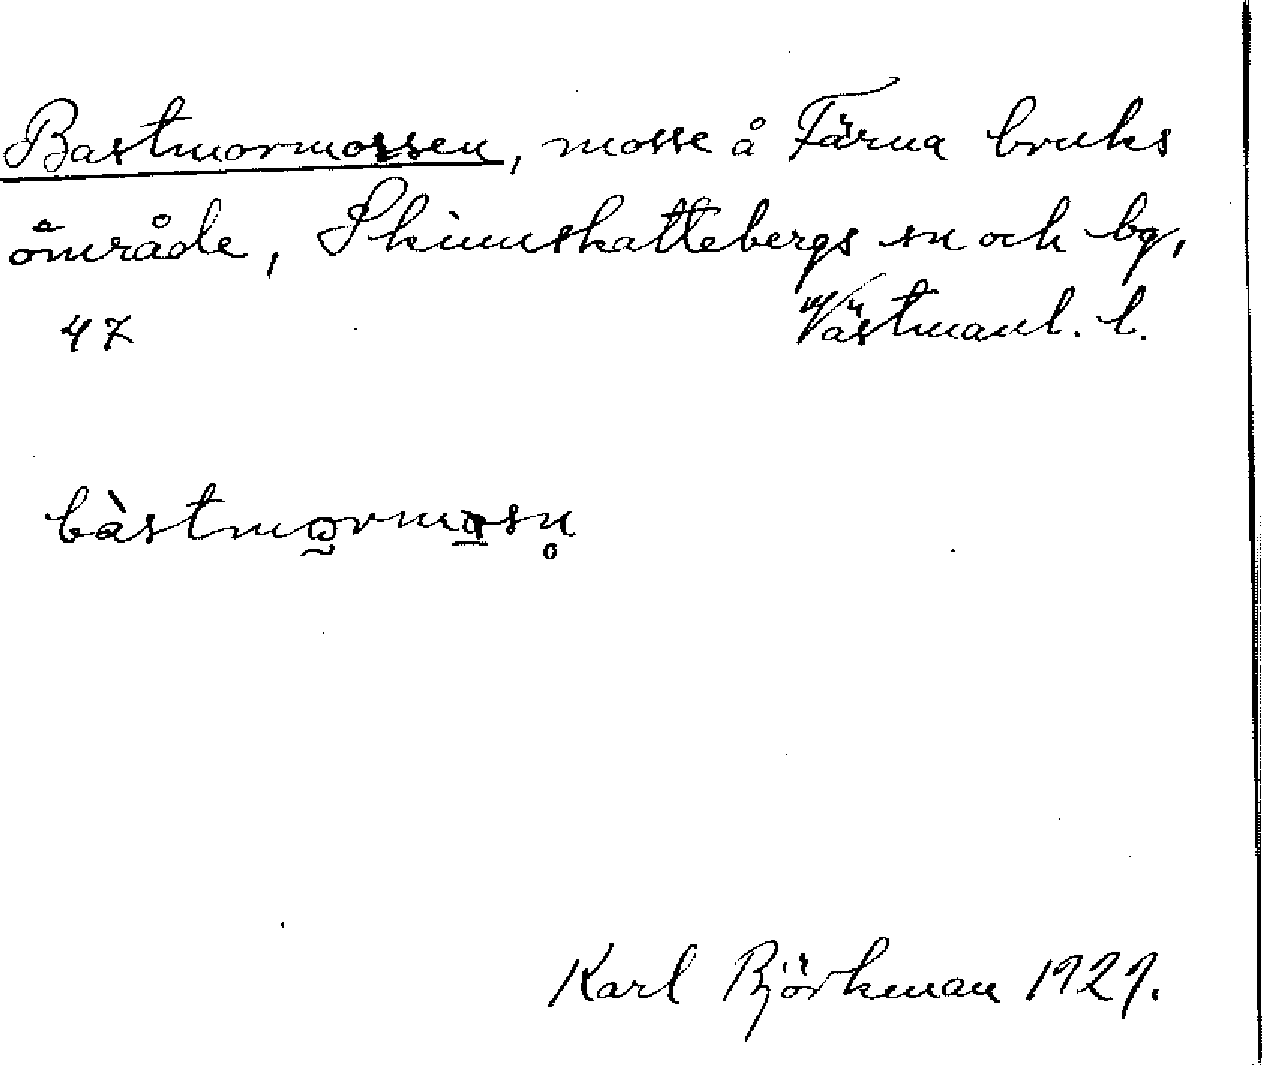 Bastmormossen, mosse å Färna bruks
område, Skinnskattebergs sn och bg,
47 Västmanl. l.
bàstmormosn̥
Karl Björkman 1929.